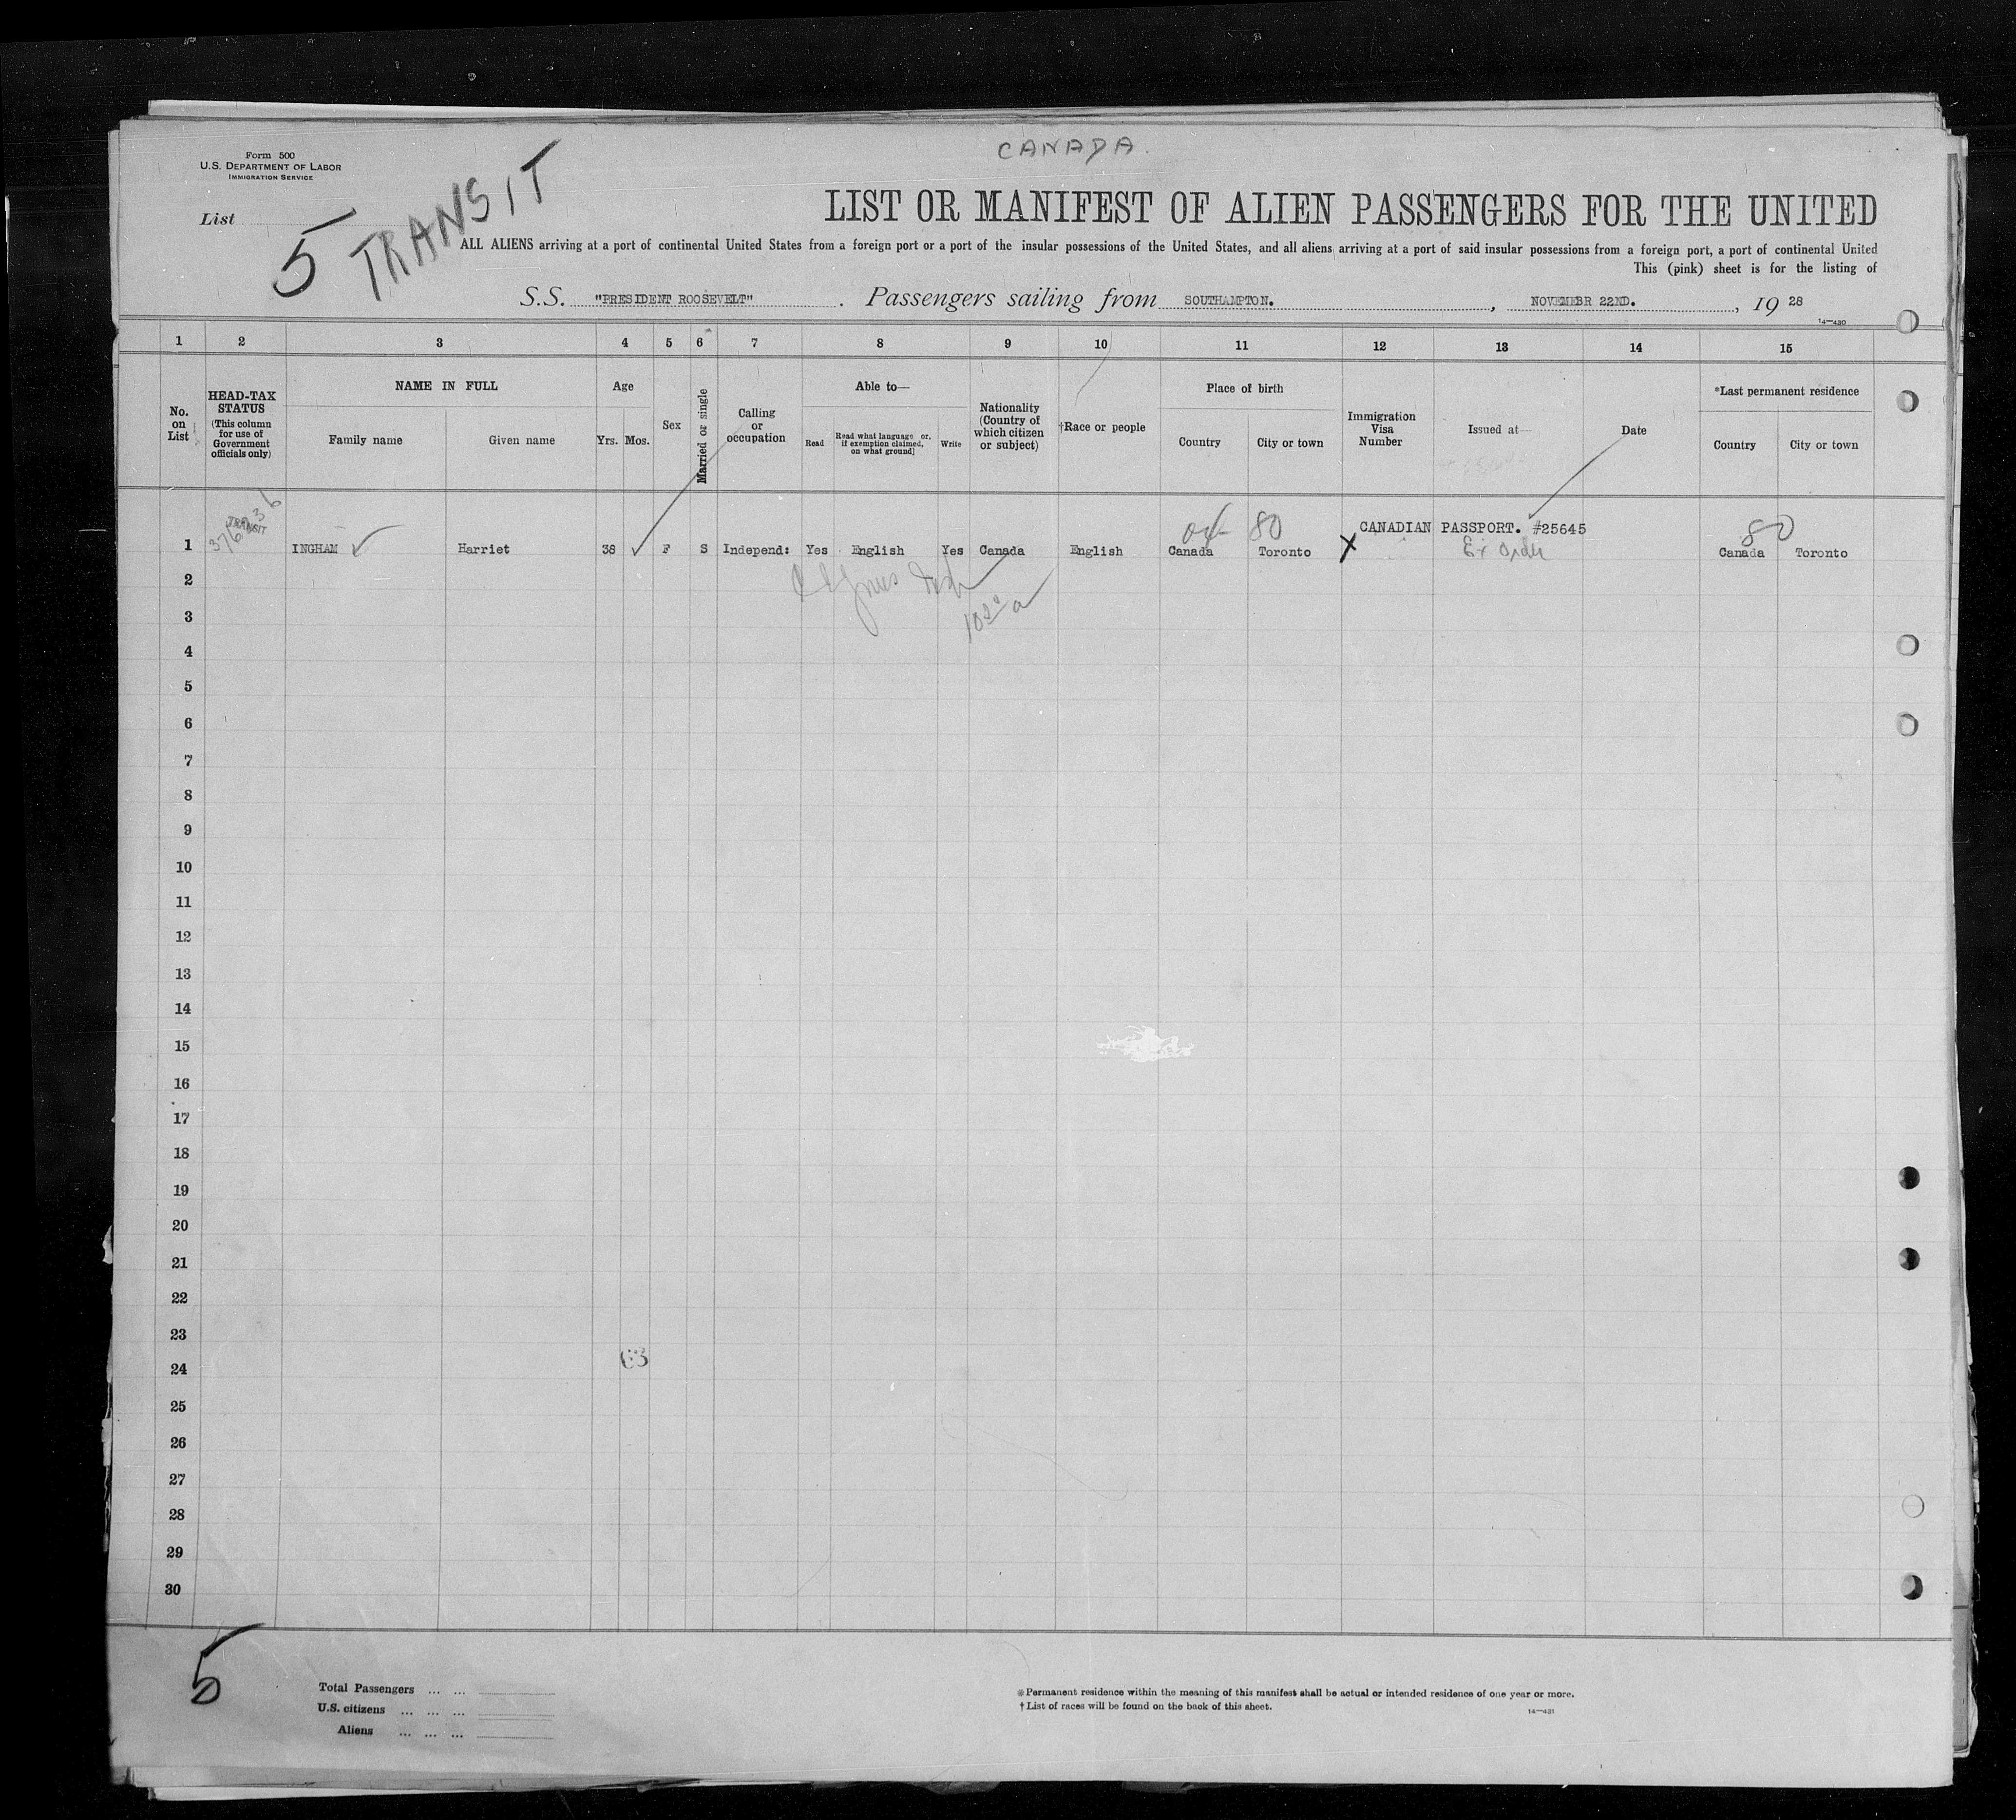 CANADA.
Form 500
U.S. DEPARTMENT OF LABOR
IMMIGRATION SERVICE
List
5 TRANSIT
LIST OR MANIFEST OF ALIEN PASSENGERS FOR THE UNITED
ALL ALIENS arriving at a port of continental United States from a foreign port or a port of the insular possessions of the United States, and all aliens arriving at a port of said insular possessions from a foreign port, a port of continental United
This (pink) sheet is for the listing of
S.S. "PRESIDENT ROOSEVELT". Passengers sailing from SOUTHAMPTON., NOVEMEBR 22ND., 19 28
14—430
1 2 3 4 5 6 7 8 9 10 11 12 13 14 15
No. on List
HEAD-TAX STATUS
(This column for use of Government officials only)
NAME IN FULL
Family name
Given name
Age
Yrs. Mos.
Sex
Married or single
Calling or occupation
Able to—
Read
Read what language or, if exemption claimed, on what ground]
Write
Nationality (Country of which citizen or subject)
†Race or people
Place of birth
Country
City or town
Immigration Visa Number
Issued at—
Date
*Last permanent residence
Country
City or town
TRANSIT
80
CANADIAN PASSPORT. #25645
80
1 INGHAM Harriet 38 F S Independ: Yes English Yes Canada English Canada Toronto X Ex Order Canada Toronto
2
3
4
5
6
7
8
9
10
11
12
13
14
15
16
17
18
19
20
21
22
23
63
24
25
26
27
28
29
30
5
Total Passengers ... ...
U.S. citizens ... ... ...
Aliens ... ... ...
*Permanent residence within the meaning of this manifest shall be actual or intended residence of one year or more.
†List of races will be found on the back of this sheet.
14—431